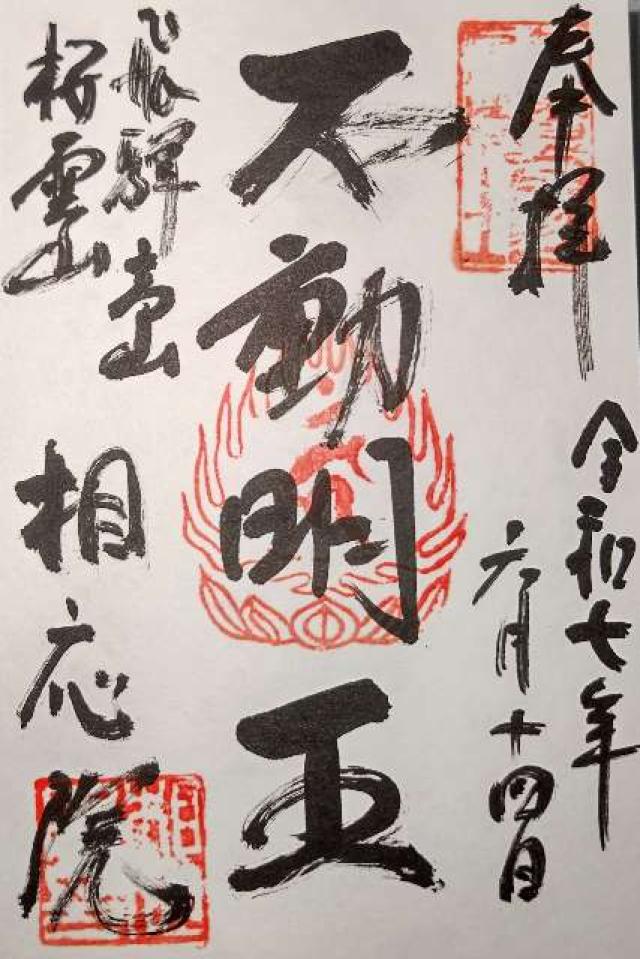 奉拝
令和七年
六月十四日
不動明王
飛騨高山
桜雲山
相応院